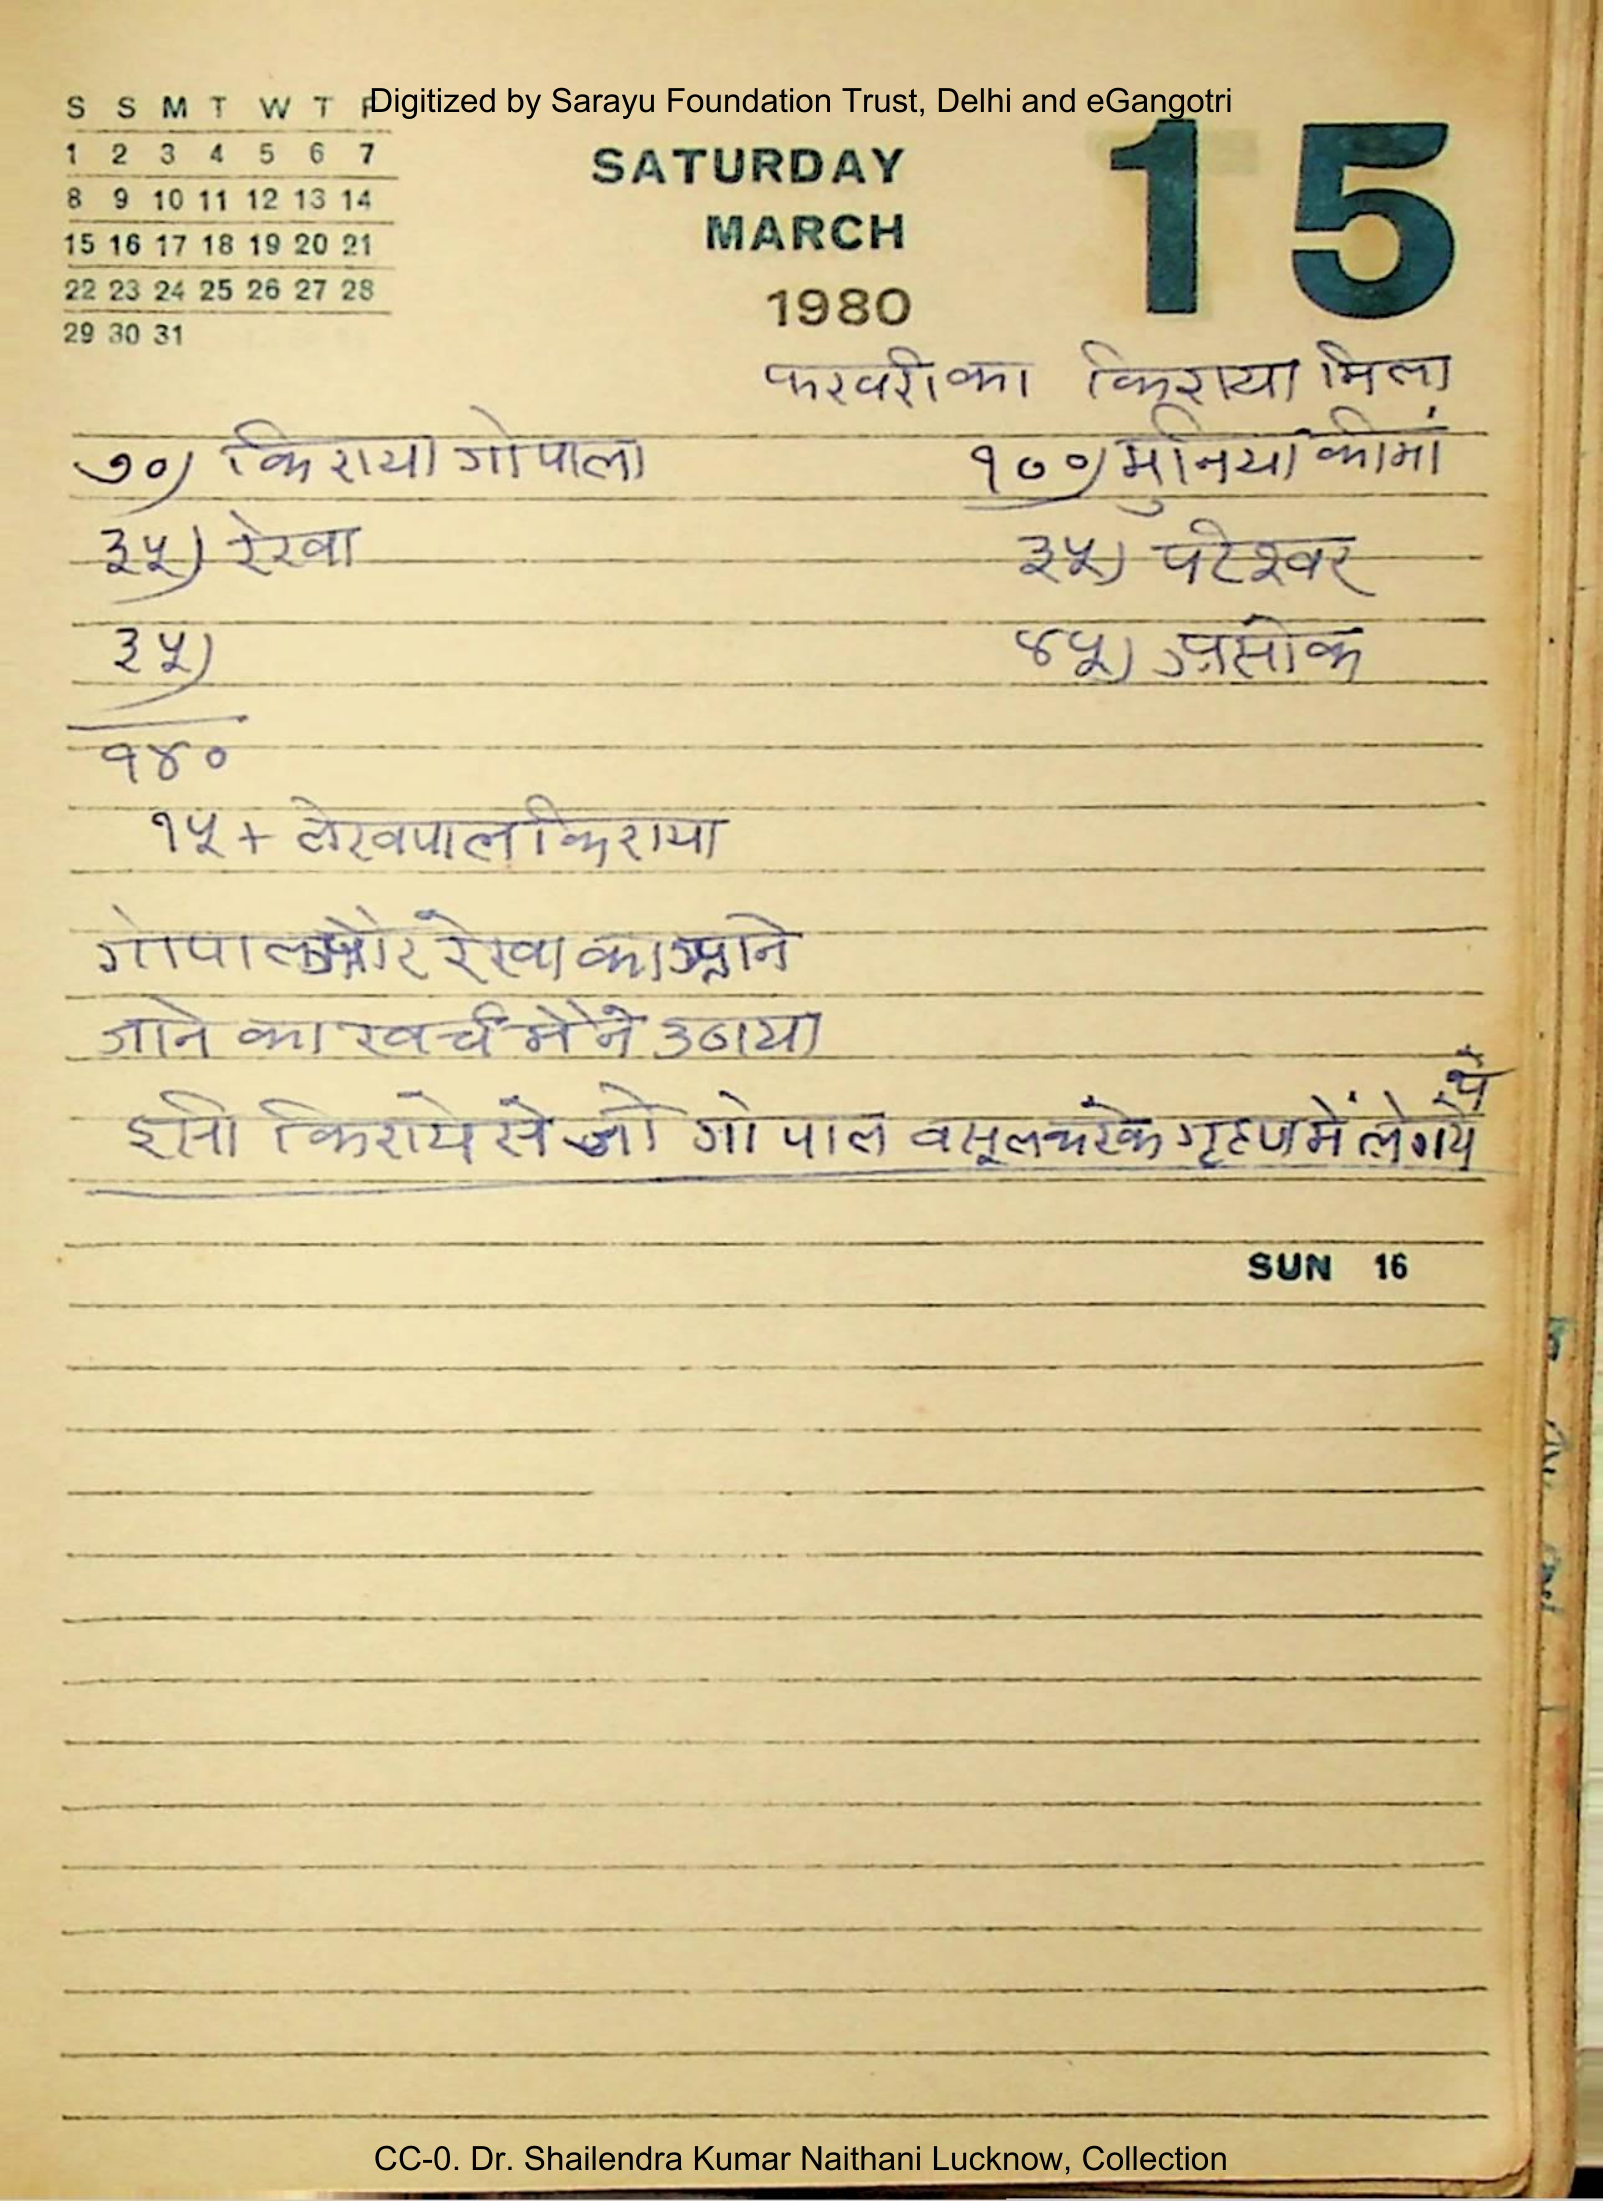 Digitized by Sarayu Foundation Trust, Delhi and eGangotri
S S M T W T F
1 2 3 4 5 6 7
8 9 10 11 12 13 14
15 16 17 18 19 20 21
22 23 24 25 26 27 28
29 30 31
SATURDAY
MARCH
1980
15
फरवरी का किराया मिला
७०) किराया गोपाला
१००) मुनिया की मां
३५) रेखा
३५) परेश्वर
३५)
४५) असोक
१४०
१५ + लेखपाल किराया
गोपाल और रेखा का आने
जाने का खर्च मैने उठाया
इसी किराये से जो गोपाल वसूल करके गृहण में ले गये
थे
SUN 16
CC-0. Dr. Shailendra Kumar Naithani Lucknow, Collection